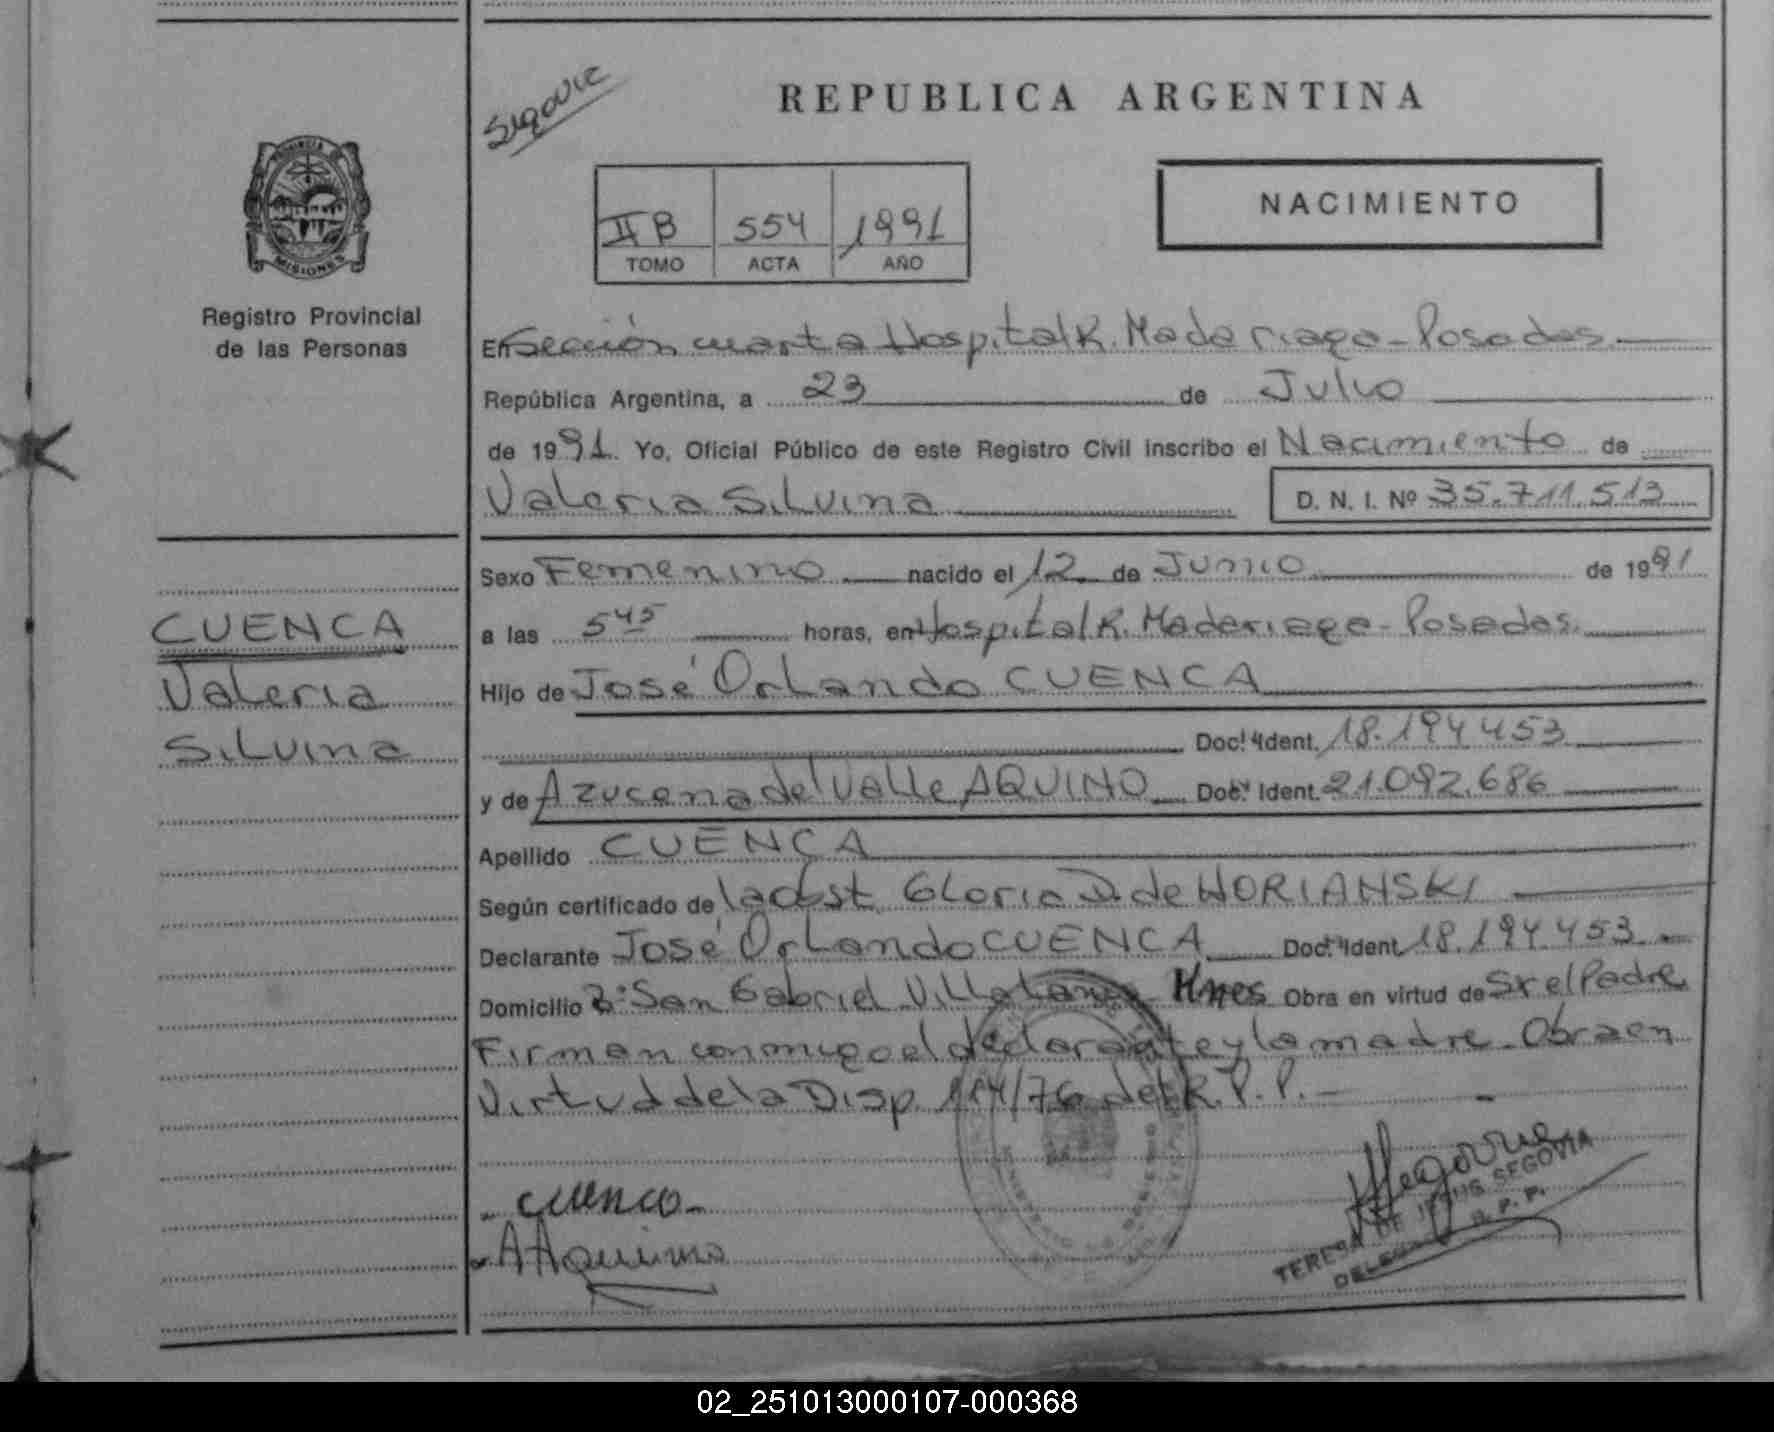 Segovia
REPUBLICA ARGENTINA
PROVINCIA DE
MISIONES
II B 554 1991
TOMO ACTA AÑO
NACIMIENTO
Registro Provincial
de las Personas
En Sección cuarta Hospital R. Madariaga - Posadas.
República Argentina, a 23 de Julio
de 1991. Yo, Oficial Público de este Registro Civil inscribo el Nacimiento de
Valeria Silvina D. N. I. Nº 35.711.513
Sexo Femenino nacido el 12 de Junio de 1991
CUENCA
Valeria
Silvina
a las 5 45 horas, en Hospital R. Madariaga - Posadas.
Hijo de José Orlando CUENCA
Doc. Ident. 18.194.453
y de Azucena del Valle AQUINO Doc. Ident. 21.092.686
Apellido CUENCA
Según certificado de la obst. Gloria D. de WORIANSKI
Declarante José Orlando CUENCA Doc. Ident. 18.194.453
Domicilio San Gabriel Villa Mnes Obra en virtud de Sr el Padre
Firman conmigo el declarante y la madre - Obra en
Virtud de la Disp. 114/76 del R. P. P. -
- Cuenca -
- A Aquino
Segovia
TERESA DE JESUS SEGOVIA
R. P. P.
02_251013000107-000368